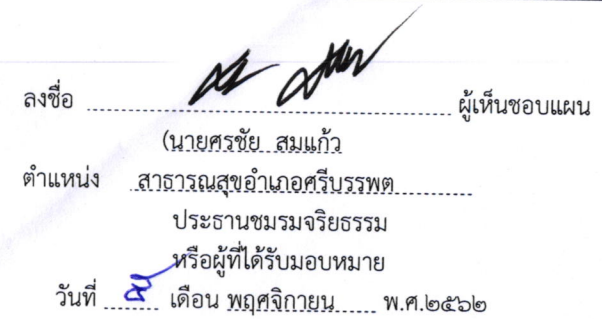 ลงชื่อ ........................................................ ผู้เห็นชอบแผน
(นายศรชัย สมแก้ว
ตำแหน่ง สาธารณสุขอำเภอศรีบรรพต
ประธานชมรมจริยธรรม
หรือผู้ที่ได้รับมอบหมาย
วันที่ ........ เดือน พฤศจิกายน ...... พ.ศ.๒๕๖๒